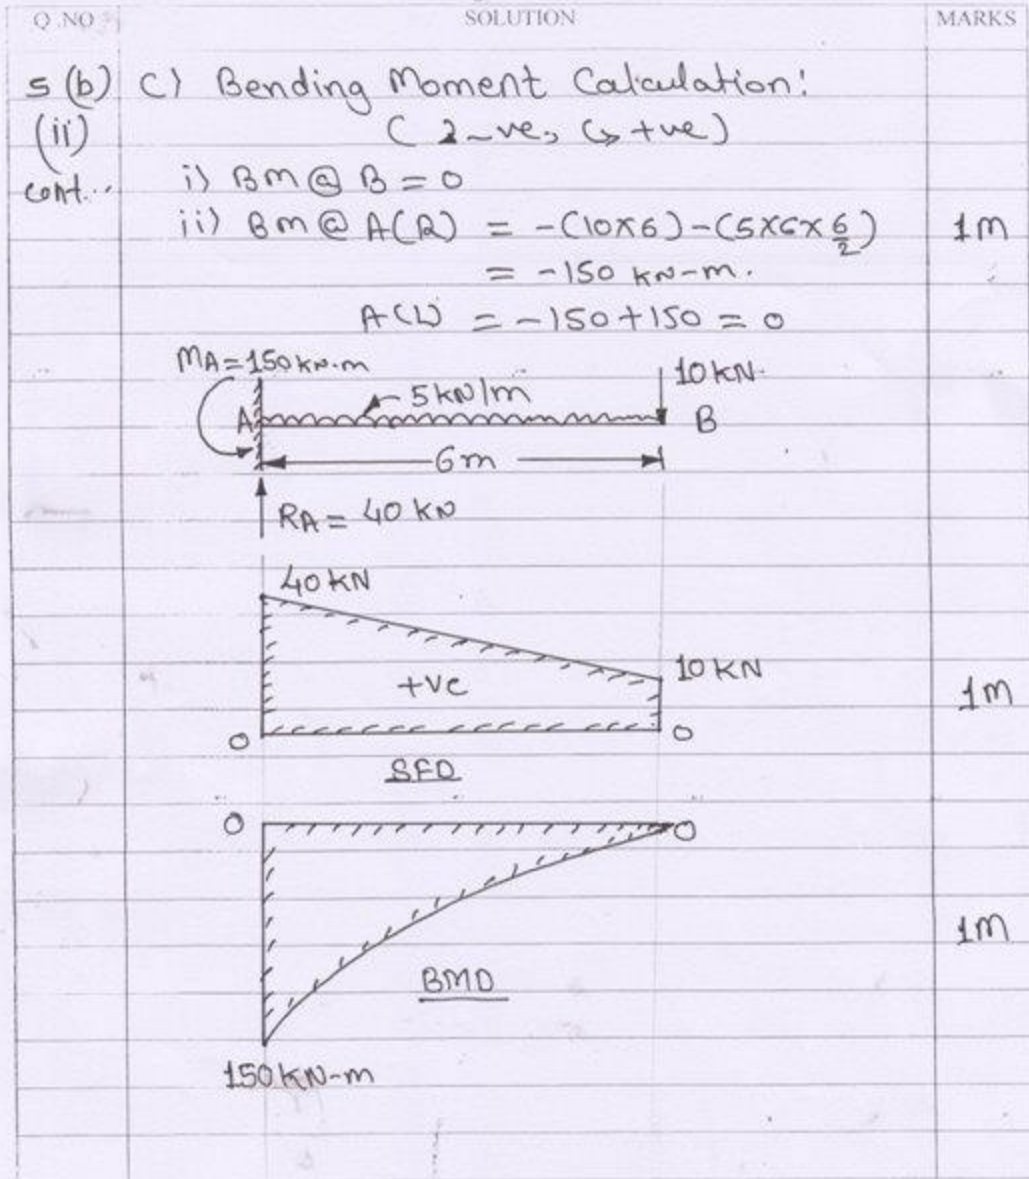 Q.NO SOLUTION MARKS
5 (b) C) Bending Moment Calculation:
(ii) (↷ -ve, ↶ +ve)
cont... i) BM @ B = 0
ii) BM @ A(R) = -(10×6)-(5×6×6/2) 1M
= -150 kN-m.
A(L) = -150+150 = 0
MA=150kN.m
10KN
5 kN/m
A B
6m
RA = 40 KN
40 KN
10 KN
+ve 1M
0 0
SFD
0 0
1M
BMD
150KN-m